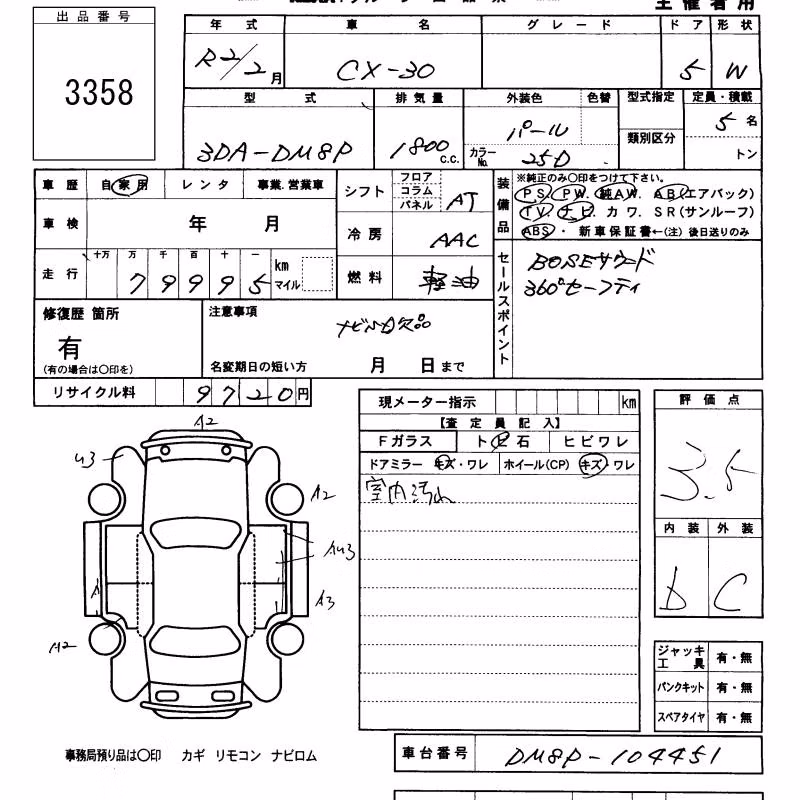 主催者用
出品番号
3358
年式 車名 グレード ドア 形状
R2/2月 CX-30 5 W
型式 排気量 外装色 色替 型式指定 定員・積載
類別区分
3DA-DM8P 1800 c.c. パール カラーNo. 25D 5名
トン
車歴 自家用 レンタ 事業.営業車
車検 年 月
走行 十万 万 千 百 十 一
79995 km マイル
シフト フロア コラム パネル AT
冷房 AAC
燃料 軽油
装備品
※純正のみ〇印をつけて下さい。
P S. P W. 純AW. A B(エアバック)
T V. ナビ. カ ワ. S R(サンルーフ)
ABS ・ 新車保証書←(注) 後日送りのみ
セールスポイント
BOSEサウンド
360°セーフティ
修復歴 箇所
有
(有の場合は〇印を)
注意事項
ナビSD欠品
名変期日の短い方 月 日まで
リサイクル料 9720円
現メーター指示 km
【査定員記入】
Fガラス トビ石 ヒビワレ
ドアミラー キズ・ワレ ホイール(CP) キズ・ワレ
室内汚れ
評価点
3.5
内装 外装
D C
ジャッキ工具 有・無
パンクキット 有・無
スペアタイヤ 有・無
A2
U3
A2
AU3
A
A3
A2
事務局預り品は〇印 カギ リモコン ナビロム
車台番号 DM8P-104451